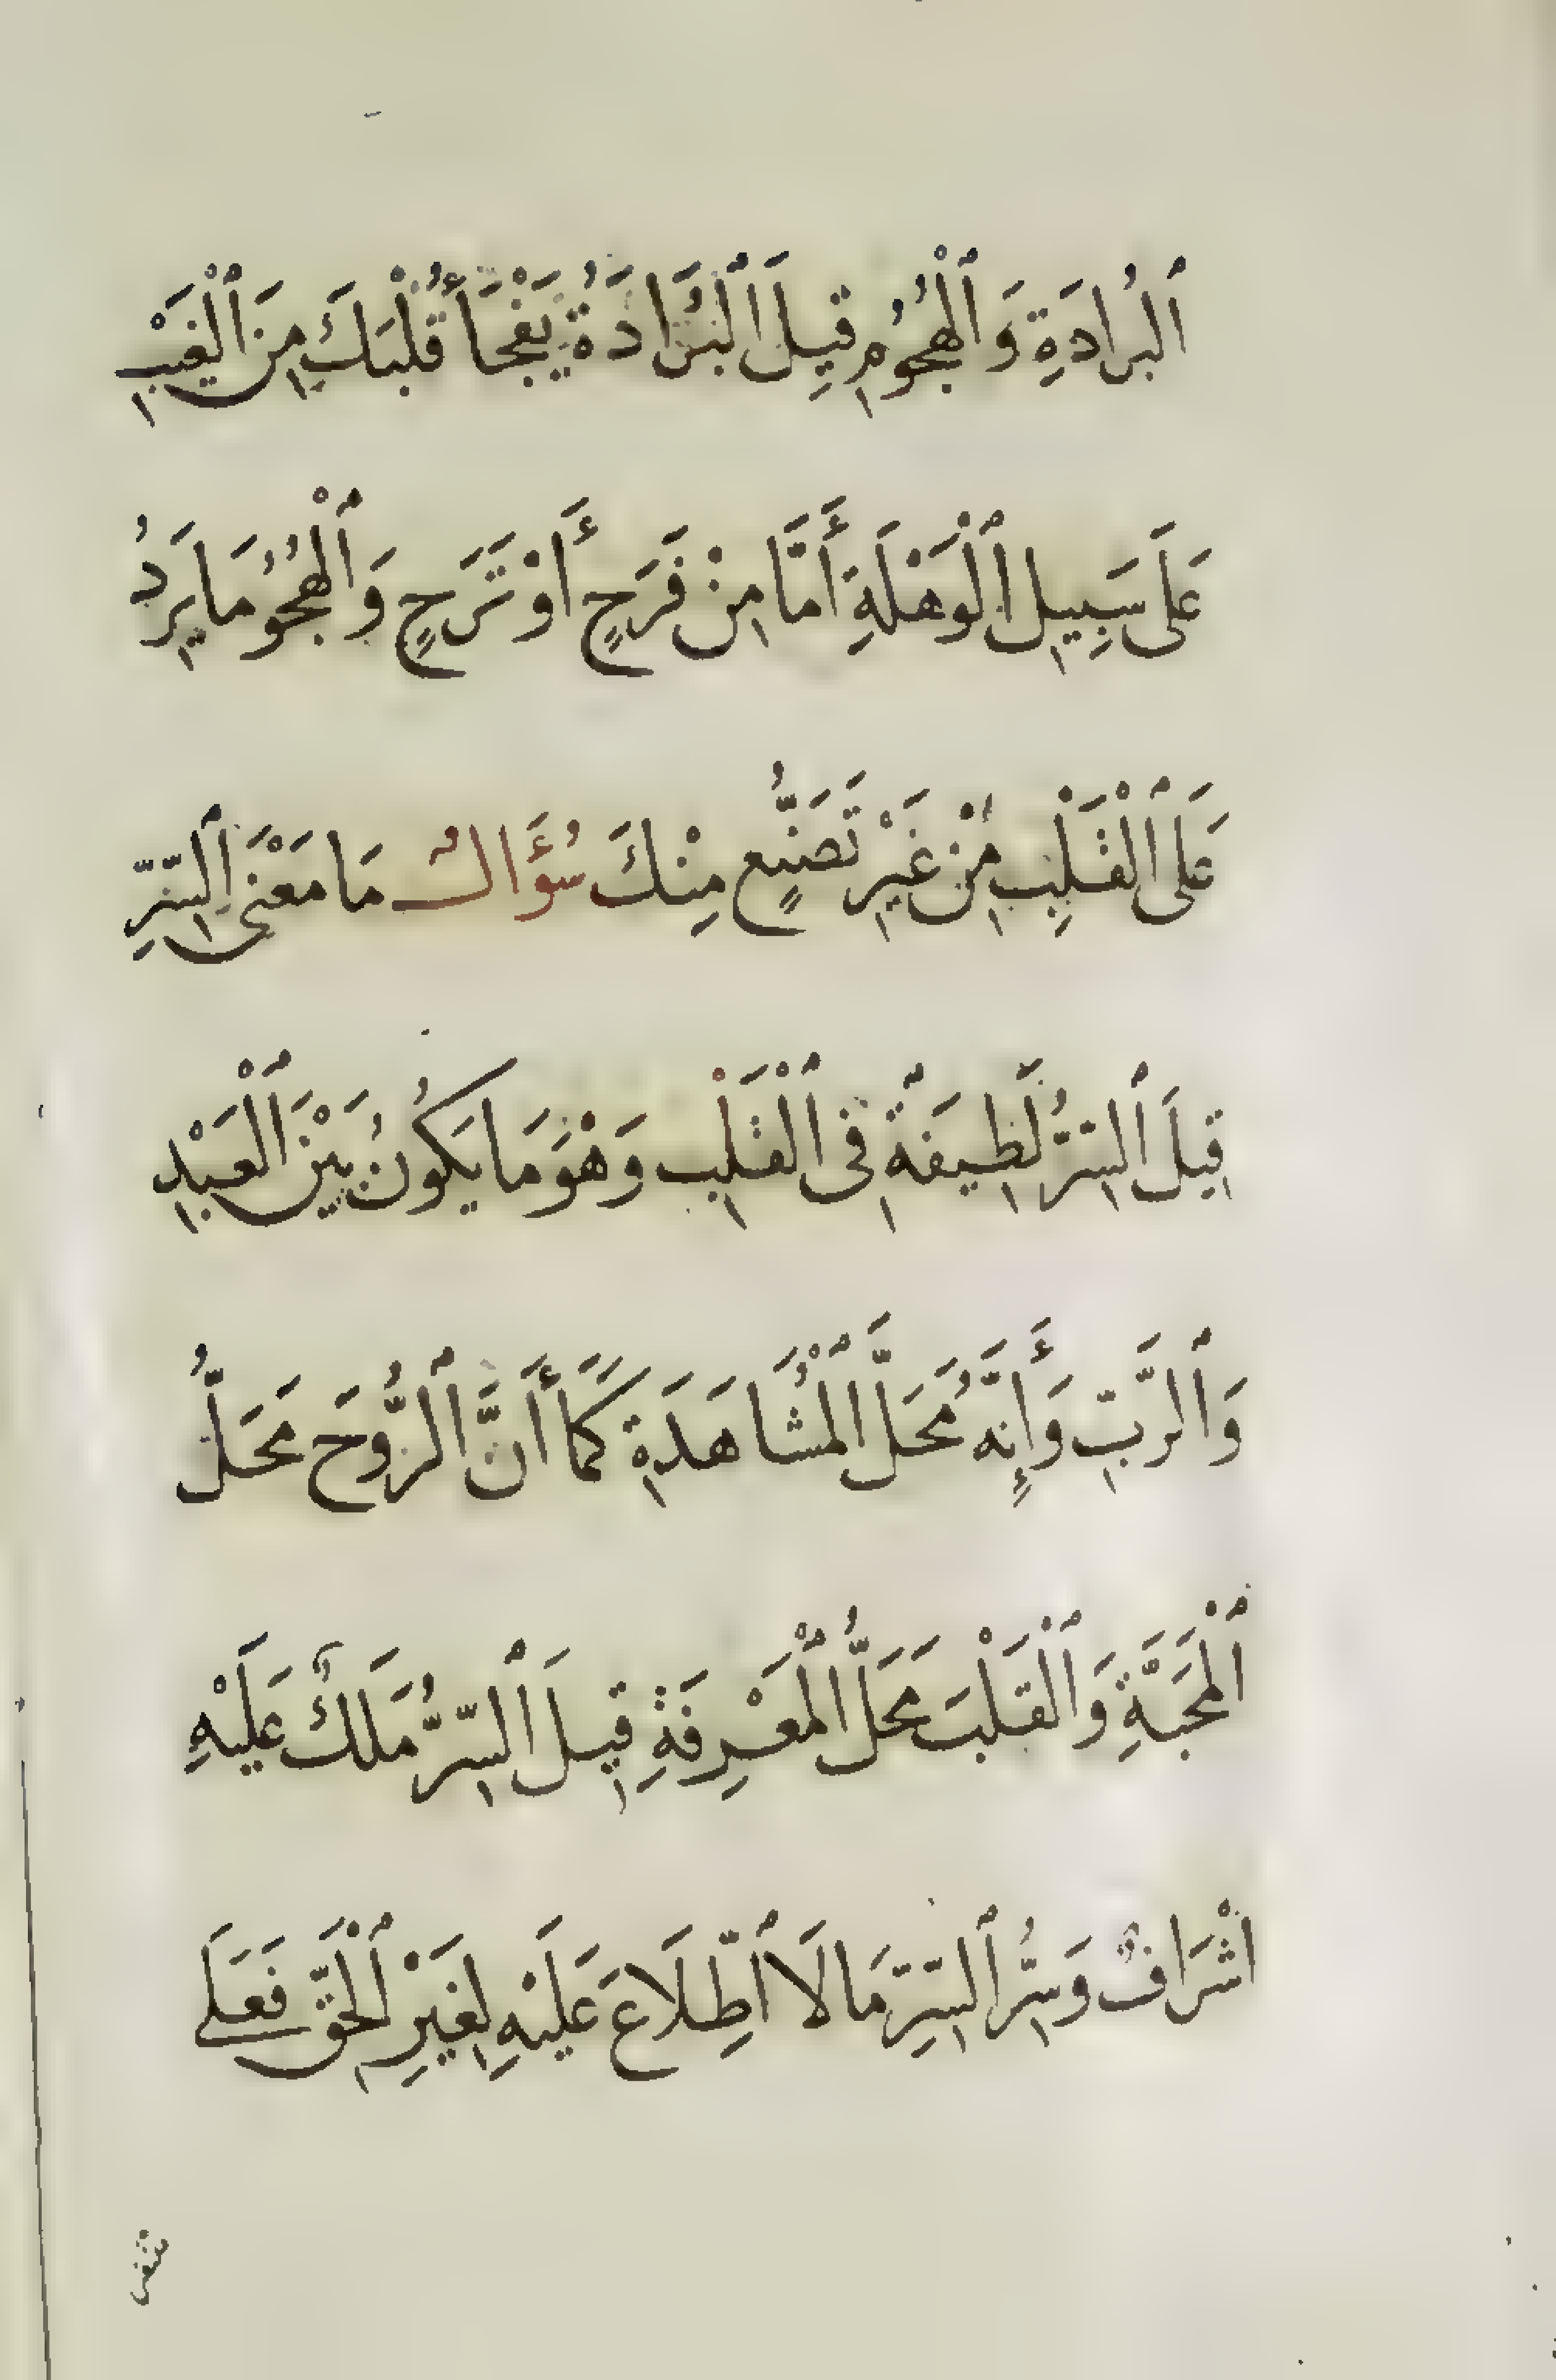 اَلبُرادَةِ وَٱلْهُجُوُمِ قِيلَ ٱلْبَرَّادَةُ يَفْجَأُ قَلْبَكَ مِنَ ٱلْغَيْبِ
عَلَى سَبِيلِ ٱلْوَهْلَةِ أَمَّا مِنْ فَرَحٍ أَوْ تَرَحٍ وَٱلْهُجُوُمَا يَرِدُ
عَلَى ٱلْقَلْبِ مِنْ غَيْرِ تَصَنُّعٍ مِنْكَ سُؤَالٌ مَا مَعْنَى ٱلسِّرِّ
قِيلَ ٱلسِّرُّ لَطِيفَةٌ فِى ٱلْقَلْبِ وَهْوَ مَا يَكُونُ بَيْنَ ٱلْعَبْدِ
وَٱلرَّبِّ وَإِنَّهُ مَحَلَّ ٱلْمُشَاهَدَةِ كَمَا أَنَّ ٱلرُّوحَ مَحَلُّ
ٱلْمَحَبَّةِ وَٱلْقَلْبَ مَحَلُّ ٱلْمَعْرِفَةِ قِيلَ ٱلسِّرُّ مَا لَكَ عَلَيْهِ
اشْرَافٌ وَسِرُّ ٱلسِّرِّ مَا لَا ٱطِّلَاعَ عَلَيْهِ لِغَيْرِ ٱلْحَقِّ فَعَلَى